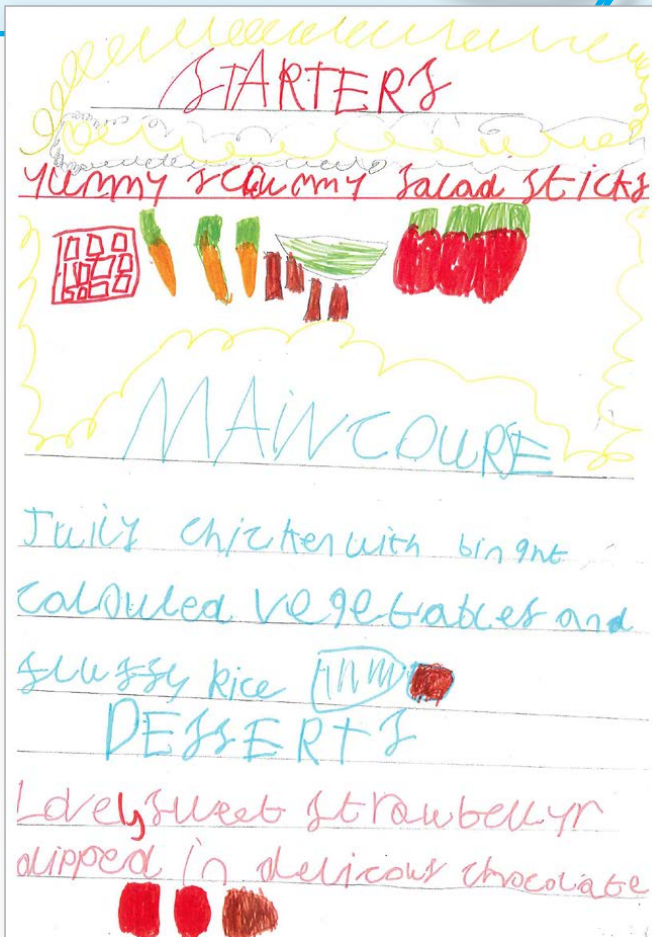 STARTERS
Yummy scrummy salad sticks
MAIN COURE
Juicy chicken with bright
coloured vegetables and
fluffy Rice
DESSERTS
Lovely sweet strawberyr
dipped in delicous chocolate